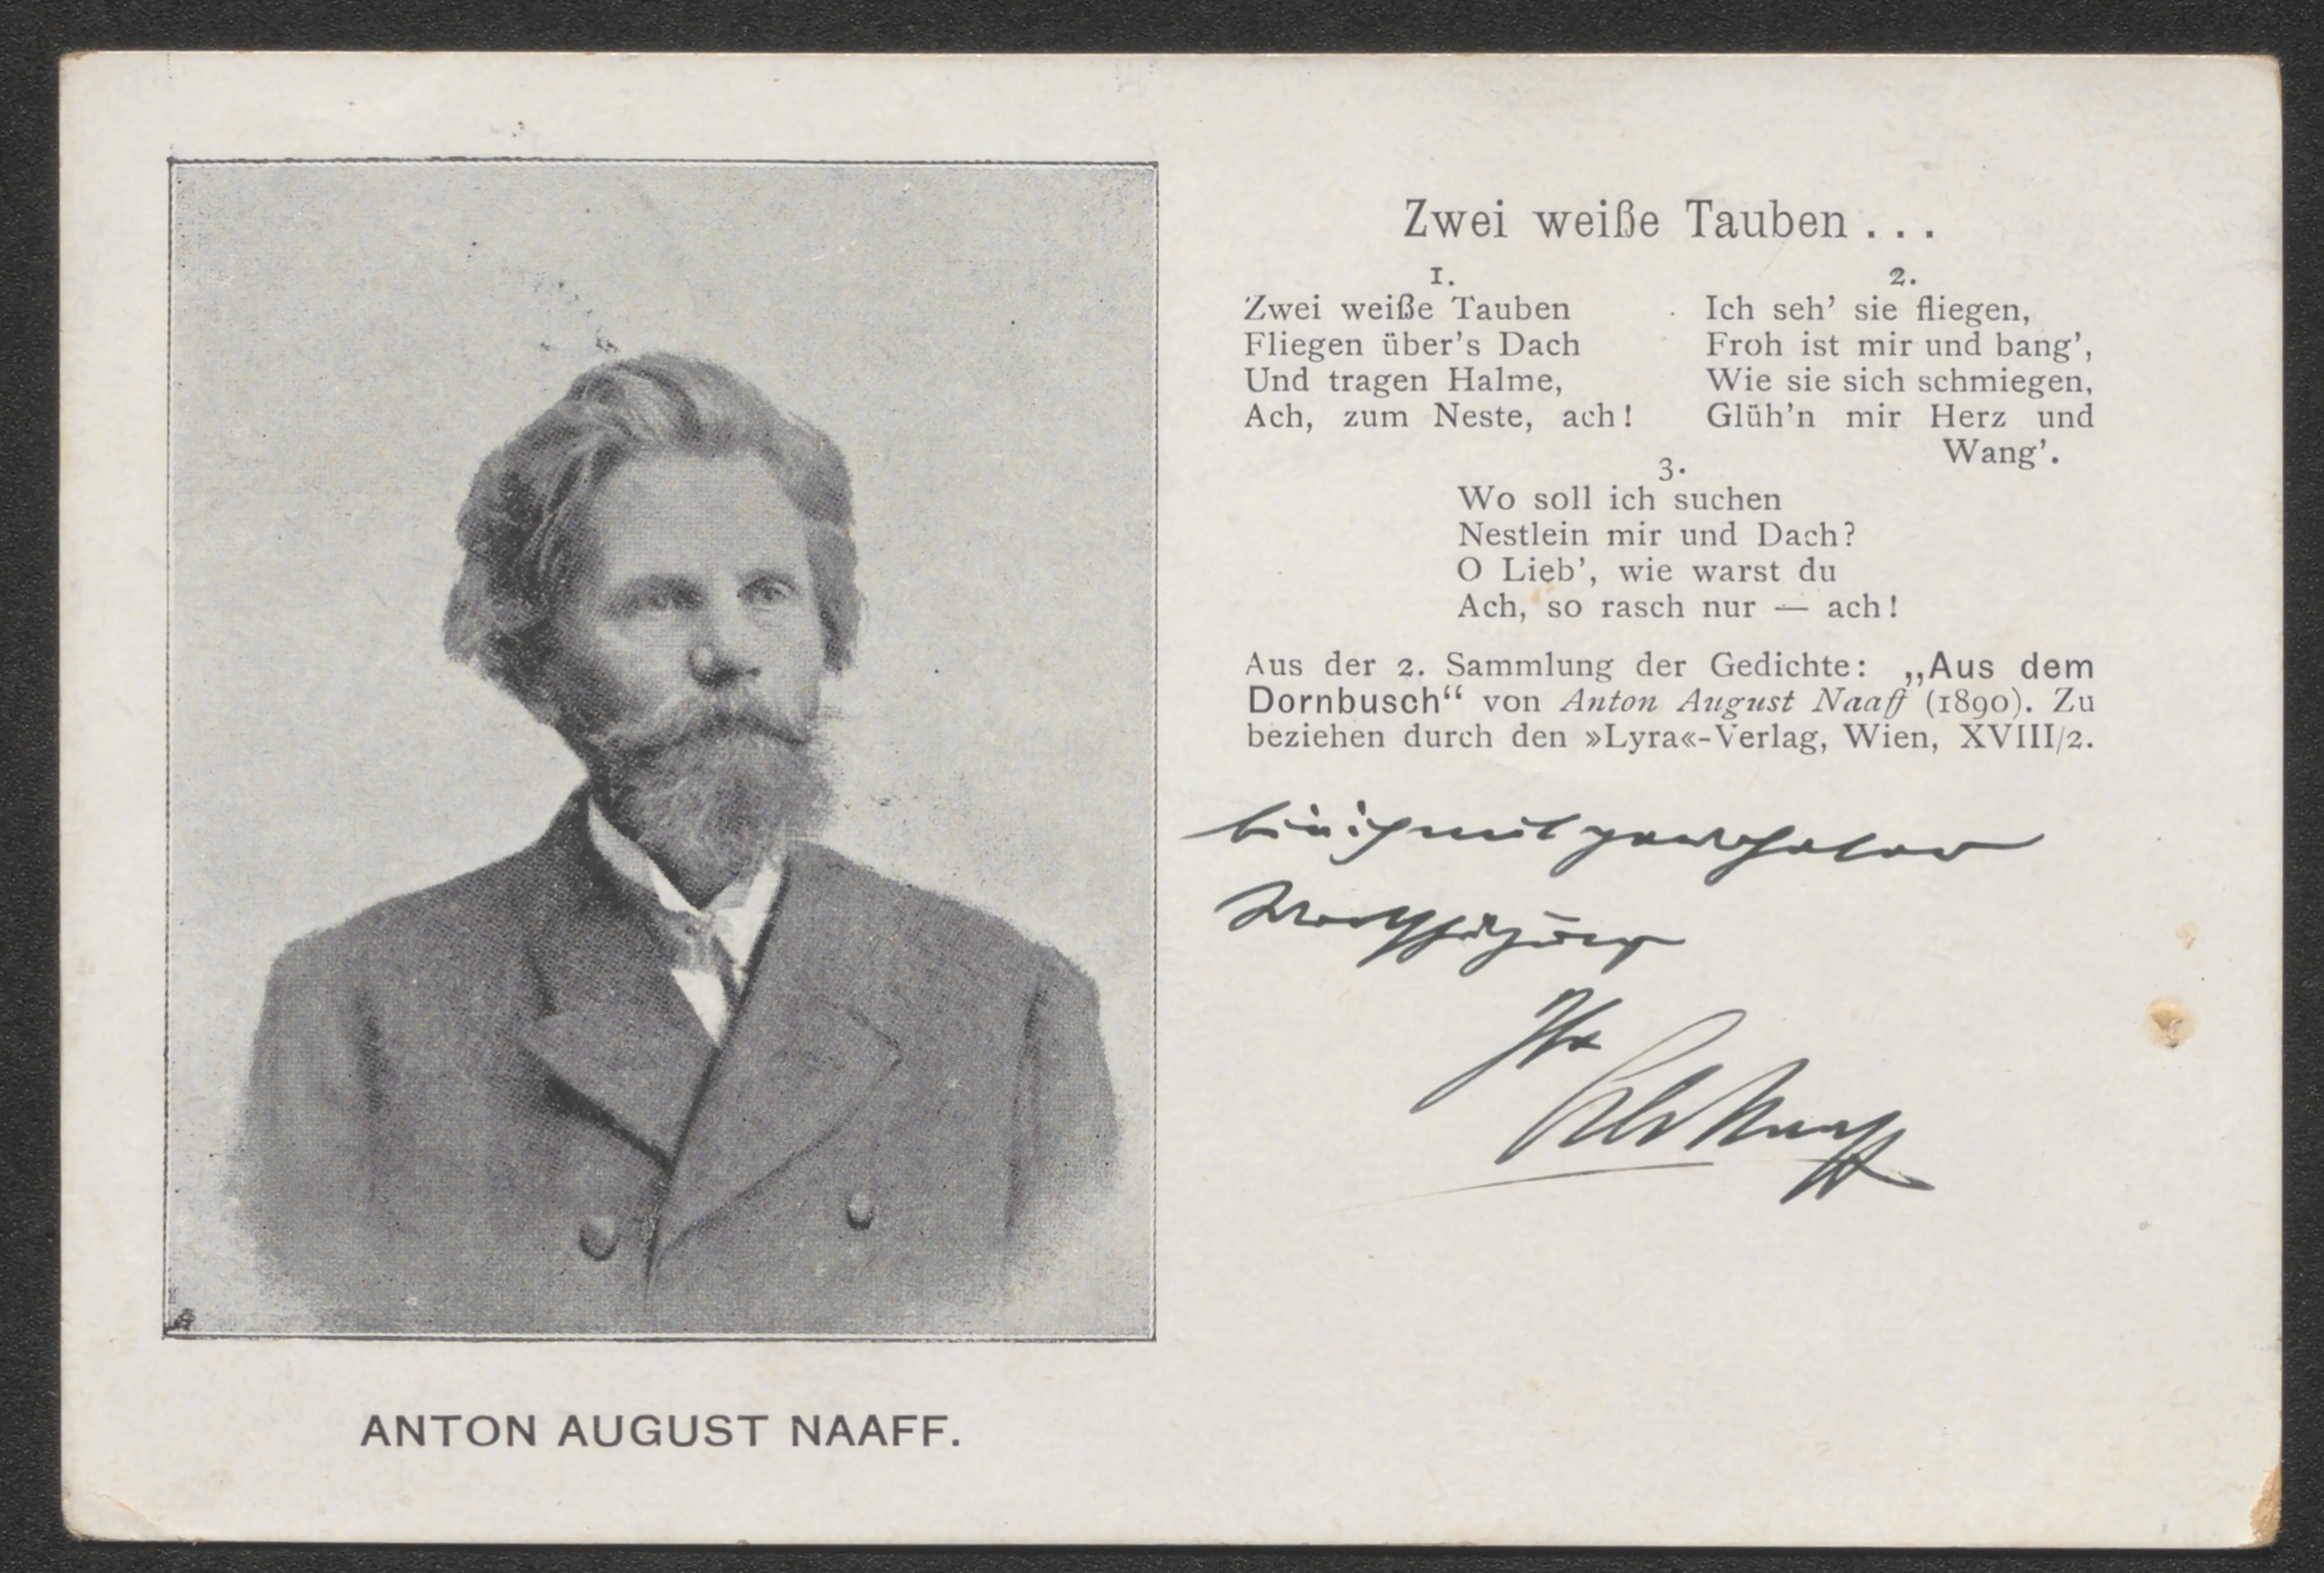 Zwei weiße Tauben . . .
1.
Zwei weiße Tauben
Fliegen über's Dach
Und tragen Halme,
Ach, zum Neste, ach!
2.
Ich seh' sie fliegen,
Froh ist mir und bang',
Wie sie sich schmiegen,
Glüh'n mir Herz und
Wang'.
3.
Wo soll ich suchen
Nestlein mir und Dach?
O Lieb', wie warst du
Ach, so rasch nur — ach!
Aus der 2. Sammlung der Gedichte: „Aus dem
Dornbusch“ von Anton August Naaff (1890). Zu
beziehen durch den »Lyra«-Verlag, Wien, XVIII/2.
Ihr
Naaff
ANTON AUGUST NAAFF.